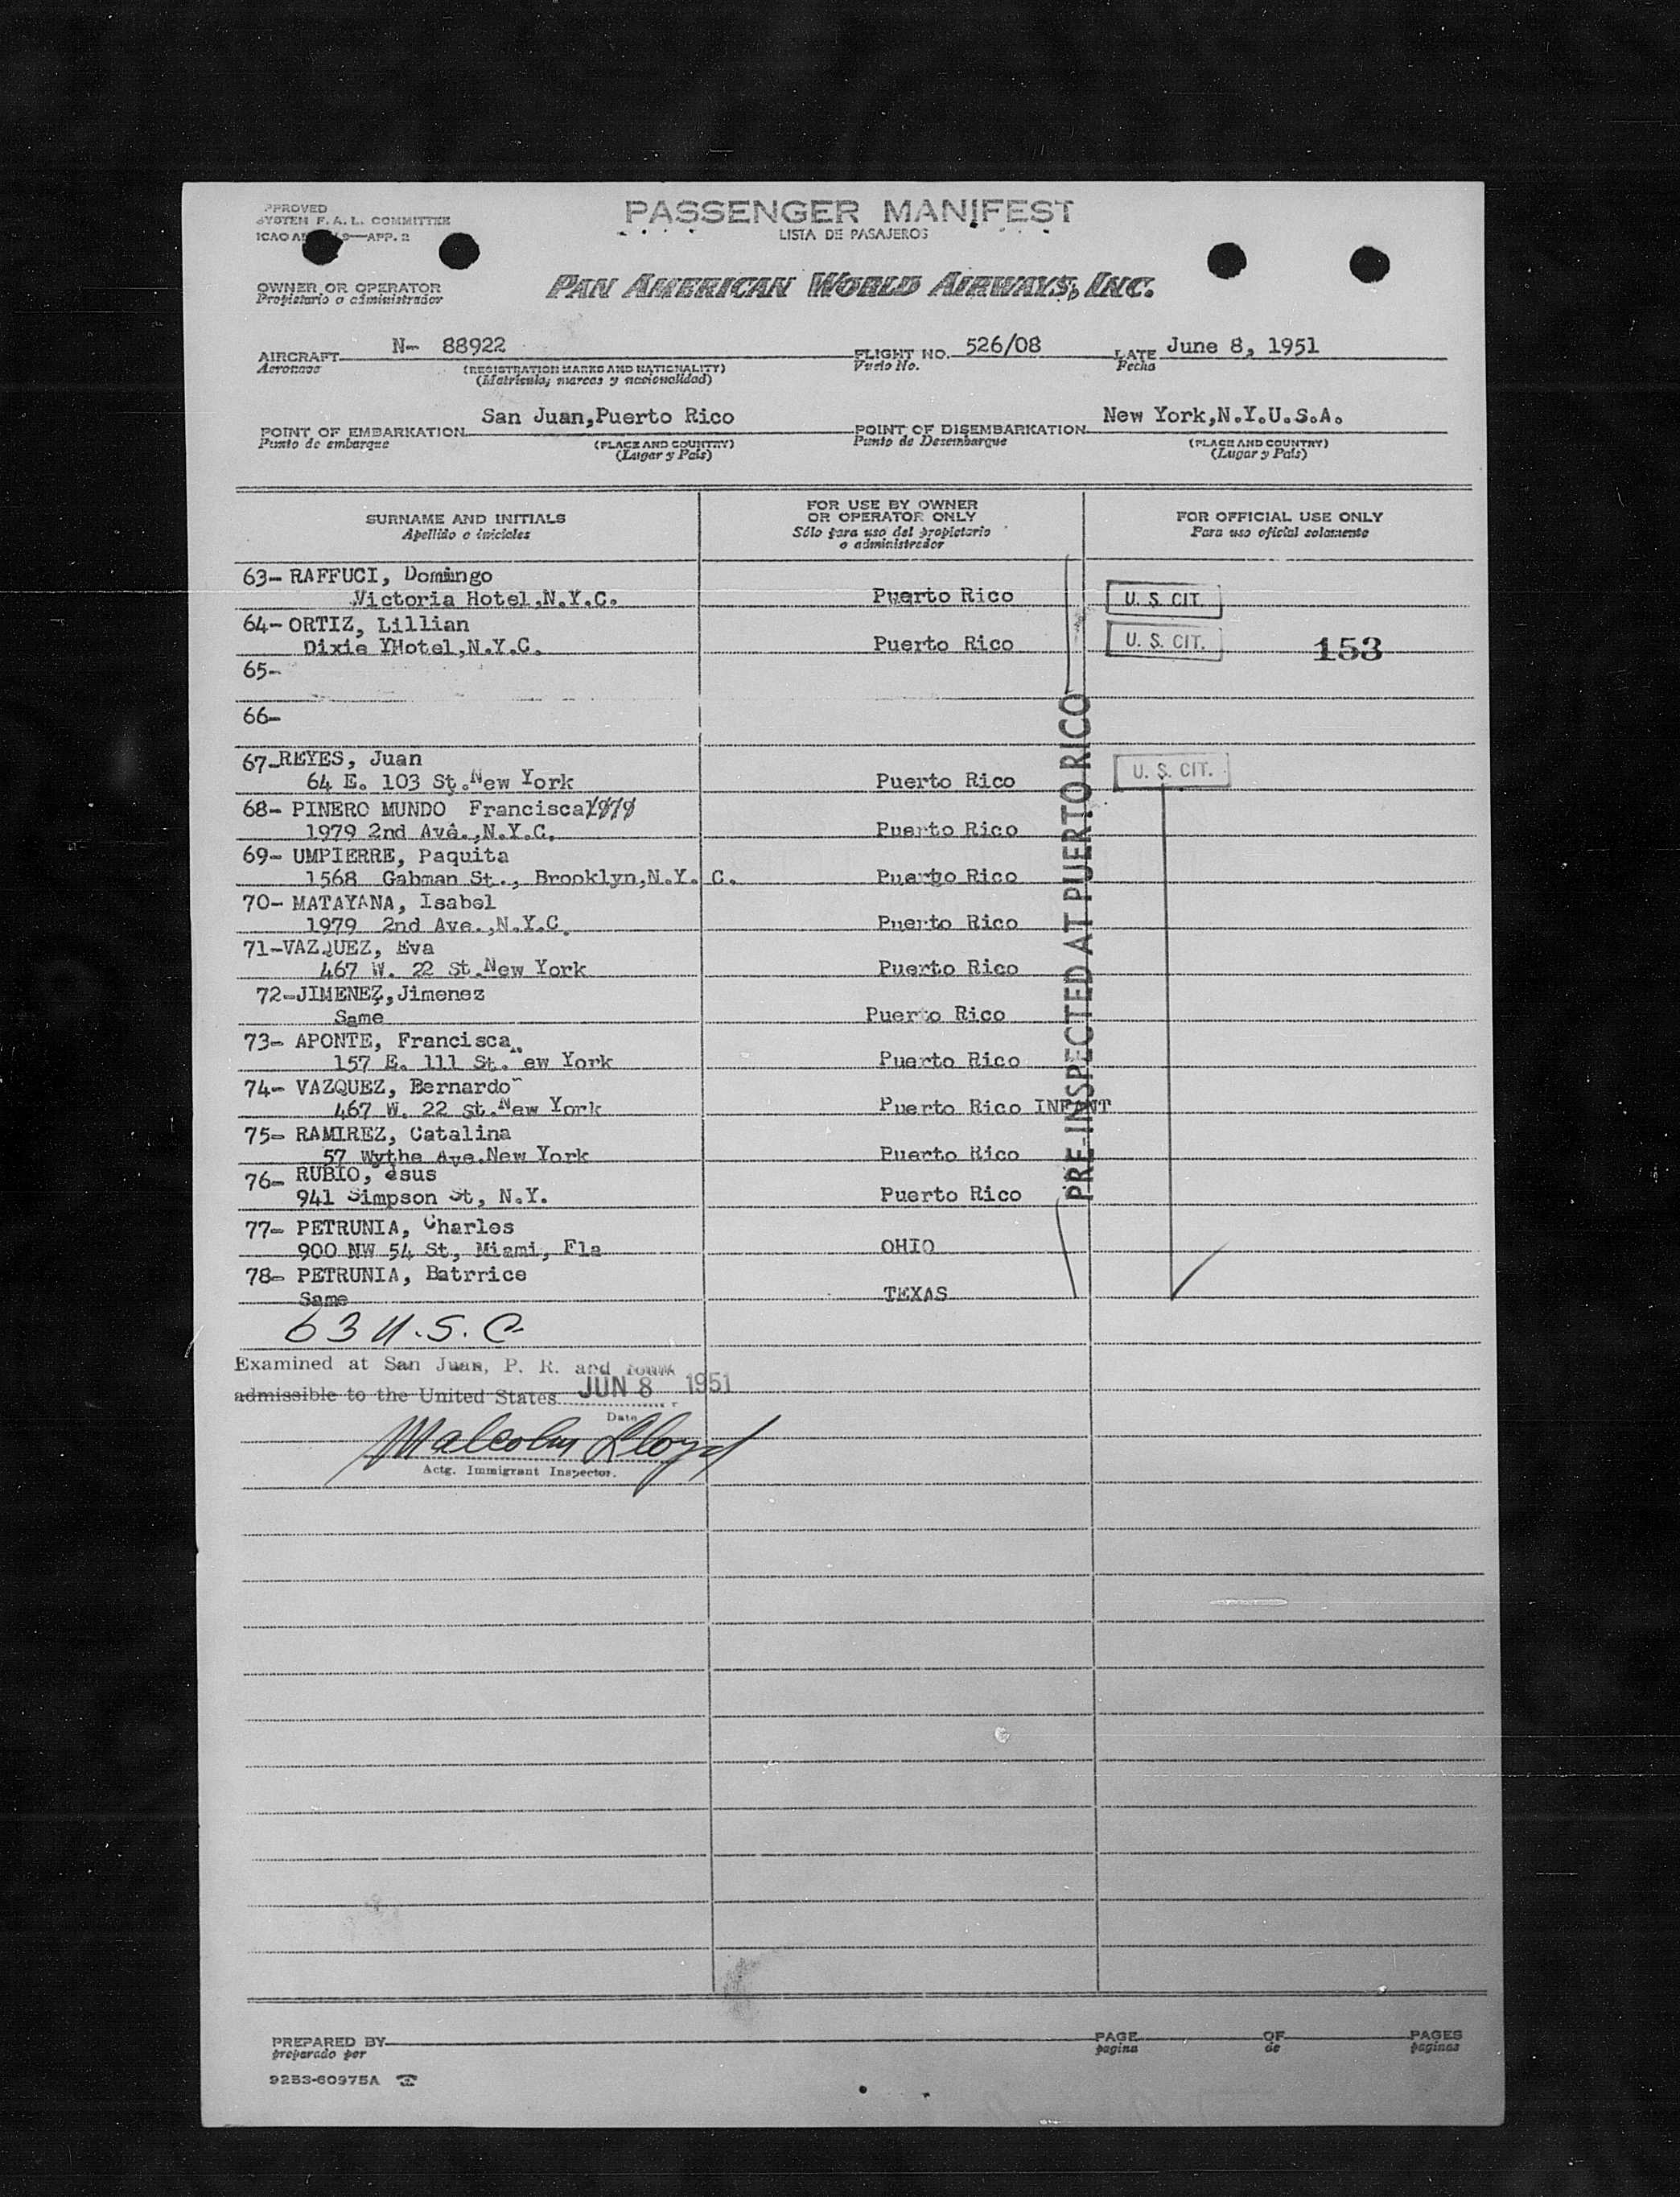 PPROVED
SYSTEM F. A. L. COMMITTEE
ICAO AN 9—APP. 2
PASSENGER MANIFEST
LISTA DE PASAJEROS
OWNER OR OPERATOR
Propietario o administrador
PAN AMERICAN WORLD AIRWAYS, INC.
AIRCRAFT N- 88922 FLIGHT NO. 526/08 DATE June 8, 1951
Aeronave (REGISTRATION MARKS AND NATIONALITY) Vuelo No. Fecha
(Matrícula, marcas y nacionalidad)
POINT OF EMBARKATION San Juan,Puerto Rico POINT OF DISEMBARKATION New York,N.Y.U.S.A.
Punto de embarque (PLACE AND COUNTRY) Punto de Desembarque (PLACE AND COUNTRY)
(Lugar y País) (Lugar y País)
SURNAME AND INITIALS
Apellido e iniciales
FOR USE BY OWNER
OR OPERATOR ONLY
Sólo para uso del propietario
o administrador
FOR OFFICIAL USE ONLY
Para uso oficial solamente
63- RAFFUCI, Domingo
Victoria Hotel,N.Y.C. Puerto Rico U. S. CIT.
64- ORTIZ, Lillian
Dixie YHotel,N.Y.C. Puerto Rico U. S. CIT. 153
65-
66-
67-REYES, Juan
64 E. 103 St.New York Puerto Rico U. S. CIT.
68- PINERO MUNDO Francisca 1979
1979 2nd Ave.,N.Y.C. Puerto Rico
69- UMPIERRE, Paquita
1568 Gabman St., Brooklyn,N.Y. C. Puerto Rico
70- MATAYANA, Isabel
1979 2nd Ave.,N.Y.C. Puerto Rico
71-VAZQUEZ, Eva
467 W. 22 St.New York Puerto Rico
72-JIMENEZ,Jimenez
Same Puerto Rico
73- APONTE, Francisca
157 E. 111 St. ew York Puerto Rico
74- VAZQUEZ, Bernardo
467 W. 22 St.New York Puerto Rico INFANT
75- RAMIREZ, Catalina
57 Wythe Ave.New York Puerto Rico
76- RUBIO, esus
941 Simpson St, N.Y. Puerto Rico
77- PETRUNIA, Charles
900 NW 54 St, Miami, Fla OHIO
78- PETRUNIA, Batrrice
Same TEXAS
PRE-INSPECTED AT PUERTO RICO
63 U.S.C.
Examined at San Juan, P. R. and found
admissible to the United States JUN 8 1951
Date
Malcolm Lloyd
Actg. Immigrant Inspector.
PREPARED BY PAGE OF PAGES
preparado por pagina de paginas
9253-60975A